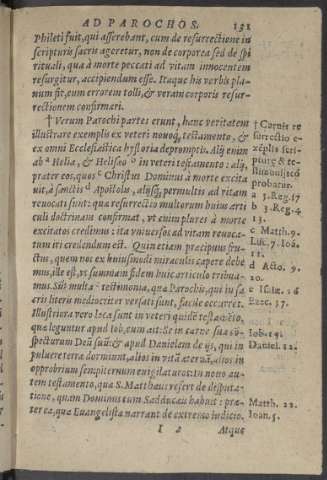 AD PAROCHOS. 131
Phileti fuit, qui asserebant, cum de resurrectione in
scripturis sacris ageretur, non de corporea sed de spi
rituali, qua à morte peccati ad vitam innocentem
resurgitur, accipiendum esse. Itaque his verbis pla-
num fit, eum errorem tolli, & veram corporis resur-
rectionem confirmari.
† Verum Parochi partes erunt, hanc veritatem
illustrare exemplis ex veteri nouoq; testamento, &
ex omni Ecclesiastica historia depromptis. Alij enim
ab a Helia, & Heliseo b in veteri testamento: alij,
præter eos, quos c Christus Dominus à morte excita
uit, à sanctis d Apostolis, alijsq; permultis ad vitam
reuocati sunt: quæ resurrectio multorum huius arti
culi doctrinam confirmat, vt enim plures à morte
excitatos credimus: ita vniuersos ad vitam reuoca-
tum iri credendum est. Quinetiam præcipuus fru-
ctus, quem nos ex huiusmodi miraculis capere debe
mus, ille est, vt summam fidem huic articulo tribua-
mus. Sūt multa testimonia, quæ Parochis, qui in sa
cris literis mediocriter versati sunt, facile occurrēt.
Illustriora vero loca sunt in veteri quidē testamēto,
quæ leguntur apud Iob, cum ait: Se in carne sua cō-
specturum Deū suū: & apud Danielem de ijs, qui in
puluere terræ dormiunt, alios in vitā æternā, alios in
opprobrium sempiternum euigilaturos: in nouo au-
tem testamento, quæ S. Matthæus refert de disputa-
tione, quam Dominus cum Sadducæis habuit: præ-
terea, quæ Euangelistæ narrant de extremo iudicio.
I 2 Atque
† Carnis re
surrectio e-
xēplis scri-
pturæ & te-
probatur.
a 3. Reg. 17
b 4. Reg. 4
13.
c Matth. 9.
Luc. 7. Ioā.
11.
d Acto. 9.
20.
Ezec. 37.
Iob. 19.
Daniel. 12.
Matth. 22.
Ioan. 5.